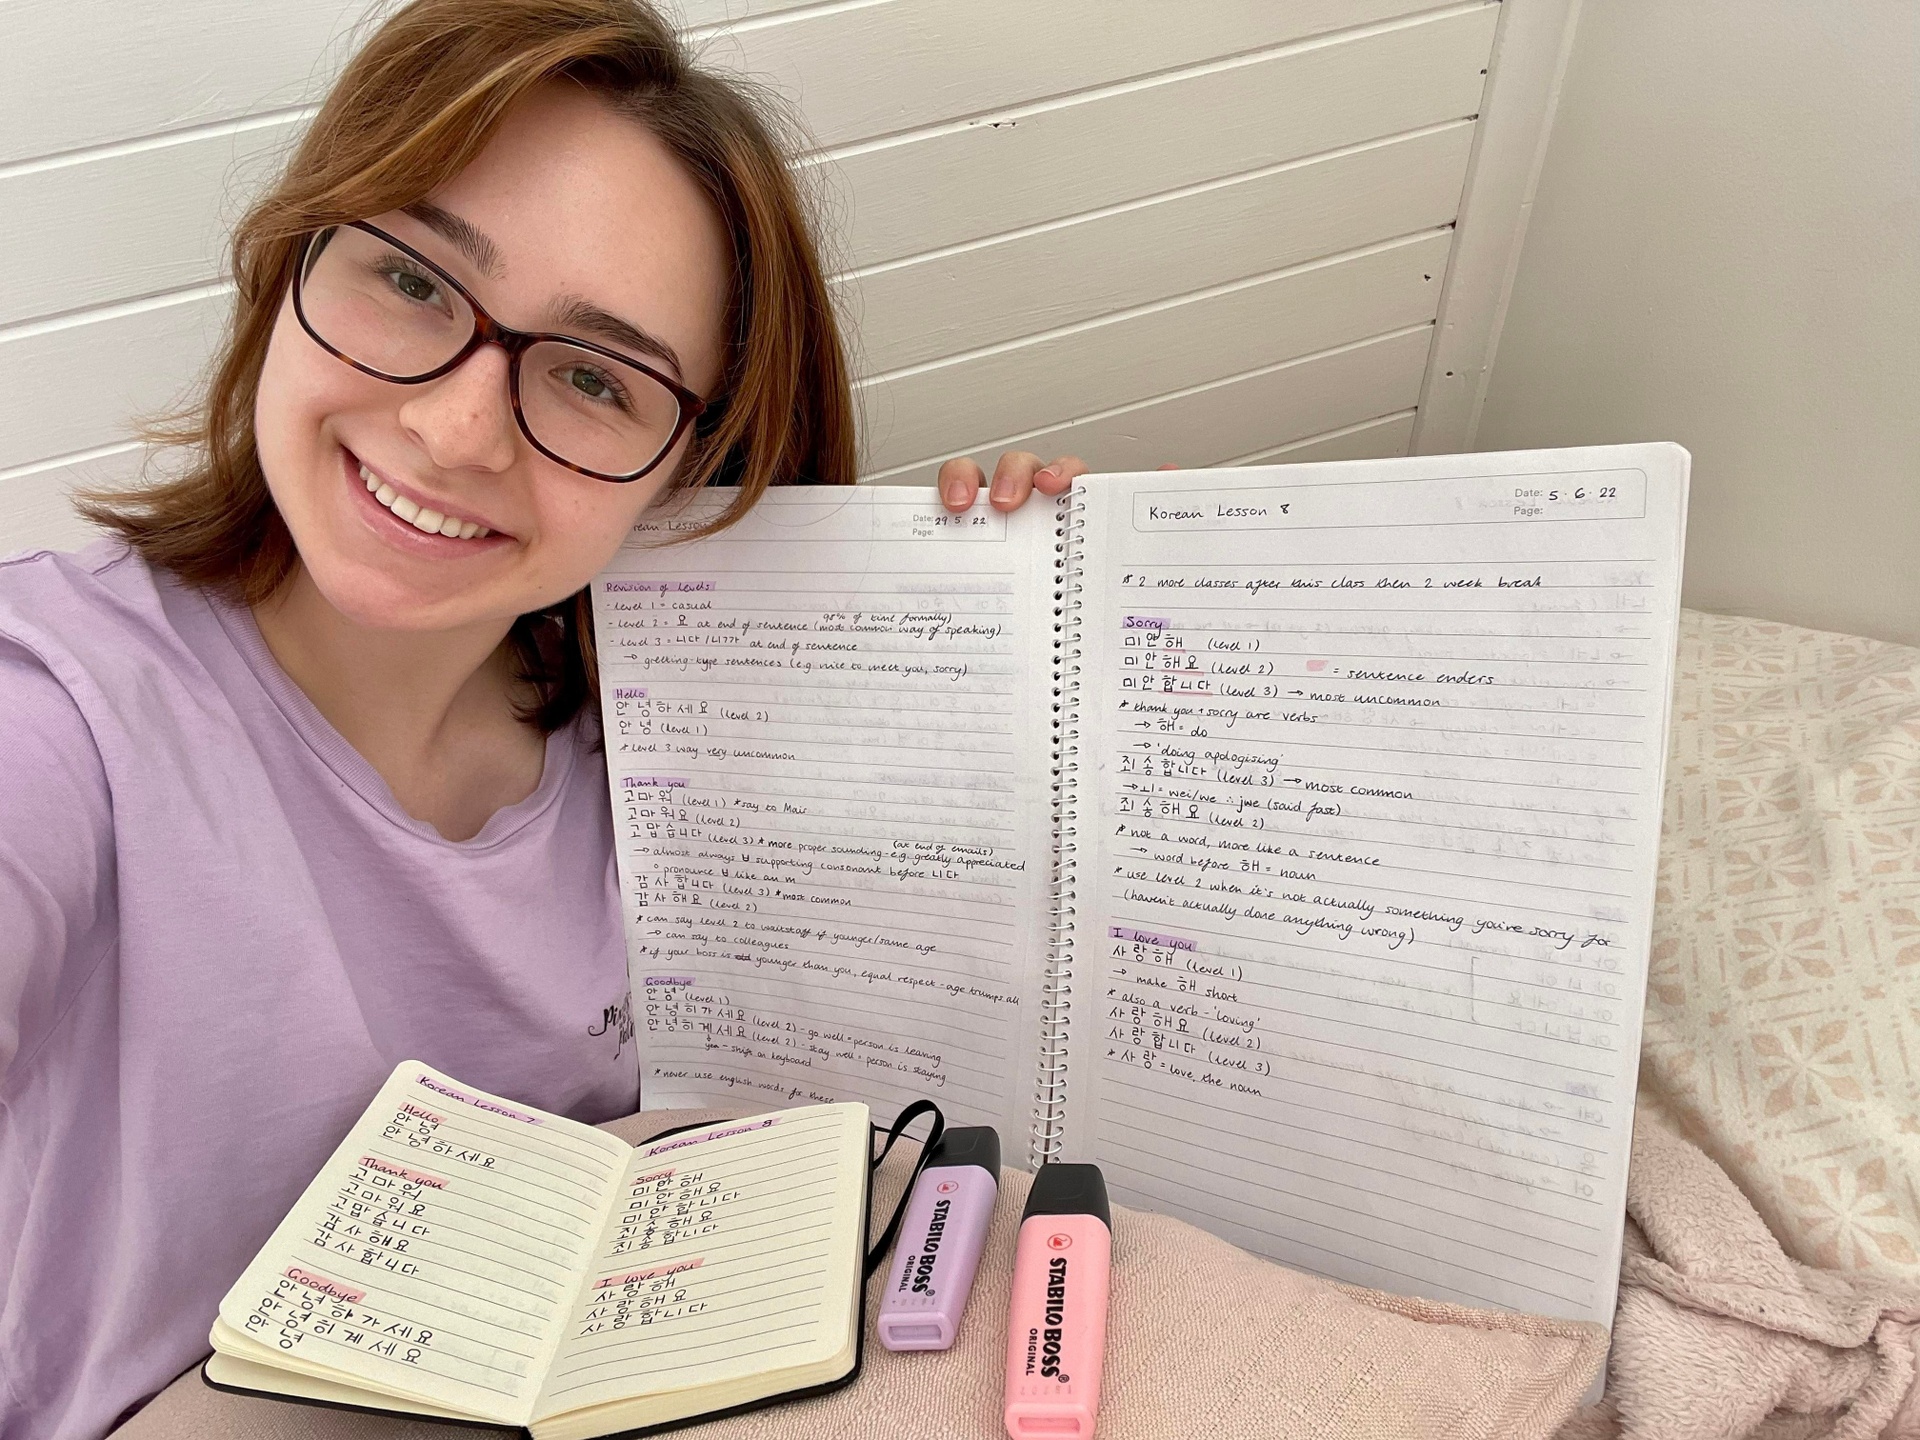 Korean Lesson
Date: 29 5 22
Page:
Revision of levels
- level 1 = casual
95% of time formally)
- level 2 = 요 at end of sentence (most common way of speaking)
- level 3 = 니다 / 니까 at end of sentence
→ greeting-type sentences (e.g nice to meet you, sorry)
Hello
안녕하세요 (level 2)
안녕 (level 1)
* level 3 way very uncommon
Thank you
고마워 (level 1) * say to Mair
고마워요 (level 2)
(at end of emails)
고맙습니다 (level 3) * more proper sounding - e.g. greatly appreciated
→ almost always ㅂ supporting consonant before 니다
° pronounce ㅂ like an m
감사합니다 (level 3) * most common
감사해요 (level 2)
* can say level 2 to waitstaff if younger/same age
→ can say to colleagues
* if your boss is old younger than you, equal respect - age trumps all
Goodbye
안녕 (level 1)
안녕히가세요 (level 2) - go well = person is leaving
안녕히계세요 (level 2) - stay well = person is staying
- shift on keyboard
* never use english words for these
Korean Lesson 8
Date: 5 · 6 · 22
Page:
* 2 more classes after this class then 2 week break
Sorry
미안해 (level 1)
미안해요 (level 2) = sentence enders
미안합니다 (level 3) → most uncommon
* thank you + sorry are verbs
→ 해 = do
→ 'doing apologising'
죄송합니다 (level 3) → most common
→ ㅚ = wei/we ∴ jwe (said fast)
죄송해요 (level 2)
* not a word, more like a sentence
→ word before 해 = noun
* use level 2 when it's not actually something you're sorry for
(haven't actually done anything wrong)
I love you
사랑해 (level 1)
→ make 해 short
* also a verb - 'loving'
사랑해요 (level 2)
사랑합니다 (level 3)
* 사랑 = love, the noun
Korean Lesson 7
Hello
안녕
안녕하세요
Thank you
고마워
고마워요
고맙습니다
감사해요
감사합니다
Goodbye
안녕하가세요
안녕히계세요
안녕
Korean Lesson 8
Sorry
미안해
미안해요
미안합니다
죄송해요
죄송합니다
I love you
사랑해
사랑해요
사랑합니다
STABILO BOSS
ORIGINAL
STABILO BOSS®
ORIGINAL